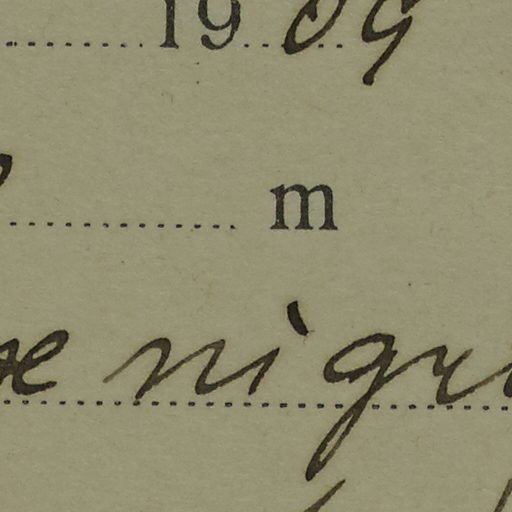 1909
m
æ nigr